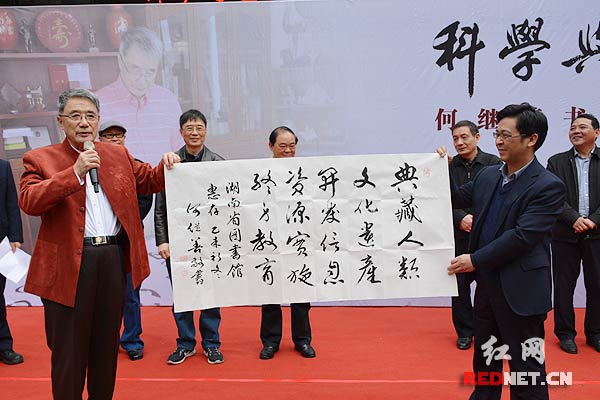 科學
何继
书
壽
典藏人類
文化遺產
開發信息
資源實施
終身教育
湖南省图書館
惠存 乙未初冬
何继善敬書
红网
REDNET.CN